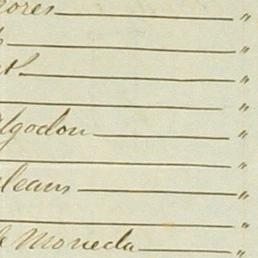 ores — "
"
"
"
lgodon — "
"
leans — "
"
e Moneda — "